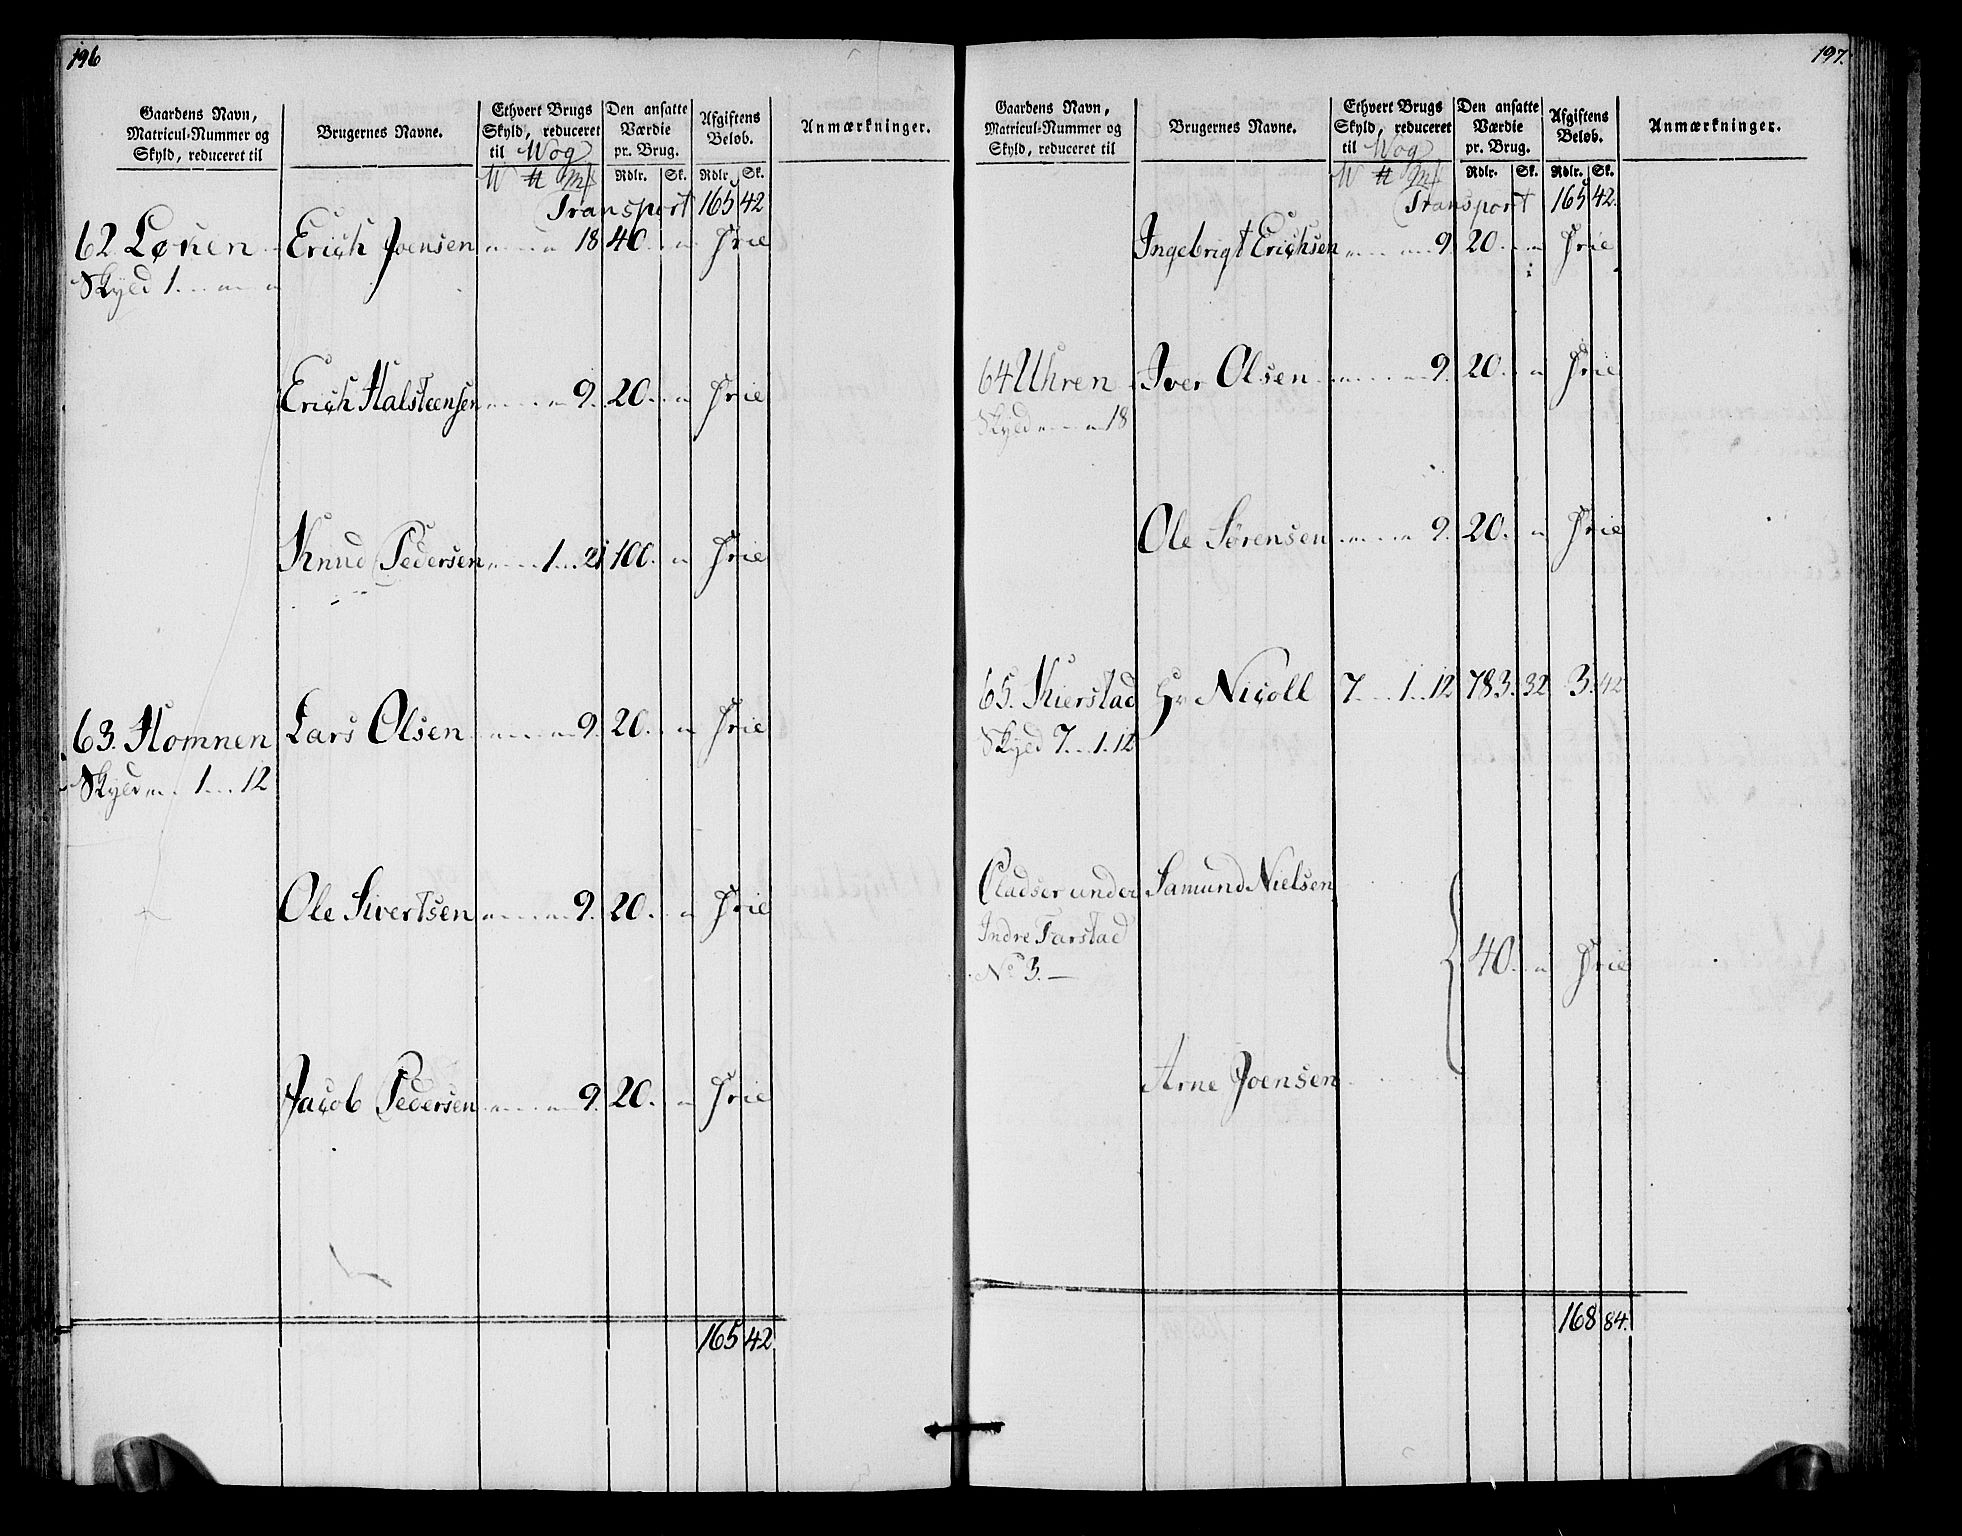 196
Gaardens Navn, Matricul-Nummer og Skyld, reduceret til
Brugernes Navne.
Ethvert Brugs Skyld, reduceret til Wog
Den ansatte Værdie pr. Brug.
Afgiftens Beløb.
Anmærkninger.
W ℔ Mk Rdlr. Sk. Rdlr. Sk.
Transport 165 42
62. Løken Erich Joensen 18 40 Frie
Skyld 1
Erich Halsteensen 9. 20. Frie
Knud Pedersen 1 21 100. Frie
63. Homnen Lars Olsen 9. 20. Frie
Skyld 1 12
Ole Sivertsen 9. 20. Frie
Jacob Pedersen 9. 20. Frie
165 42
197.
Gaardens Navn, Matricul-Nummer og Skyld, reduceret til
Brugernes Navne.
Ethvert Brugs Skyld, reduceret til Wog
Den ansatte Værdie pr. Brug.
Afgiftens Beløb.
Anmærkninger.
W ℔ Mk Rdlr. Sk. Rdlr. Sk.
Transport 165 42.
Ingebrigt Erichsen 9. 20. Frie
64 Uhren Iver Olsen 9. 20. Frie
Skyld 18
Ole Sørensen 9. 20. Frie
65. Kierstad Hr Nicoll 7. 1. 12 783. 32 3. 42
Skyld 7. 1. 12
Pladser under Samund Nielsen
Indre Farstad
40. Frie
No 3. —
Arne Joensen
168 84.